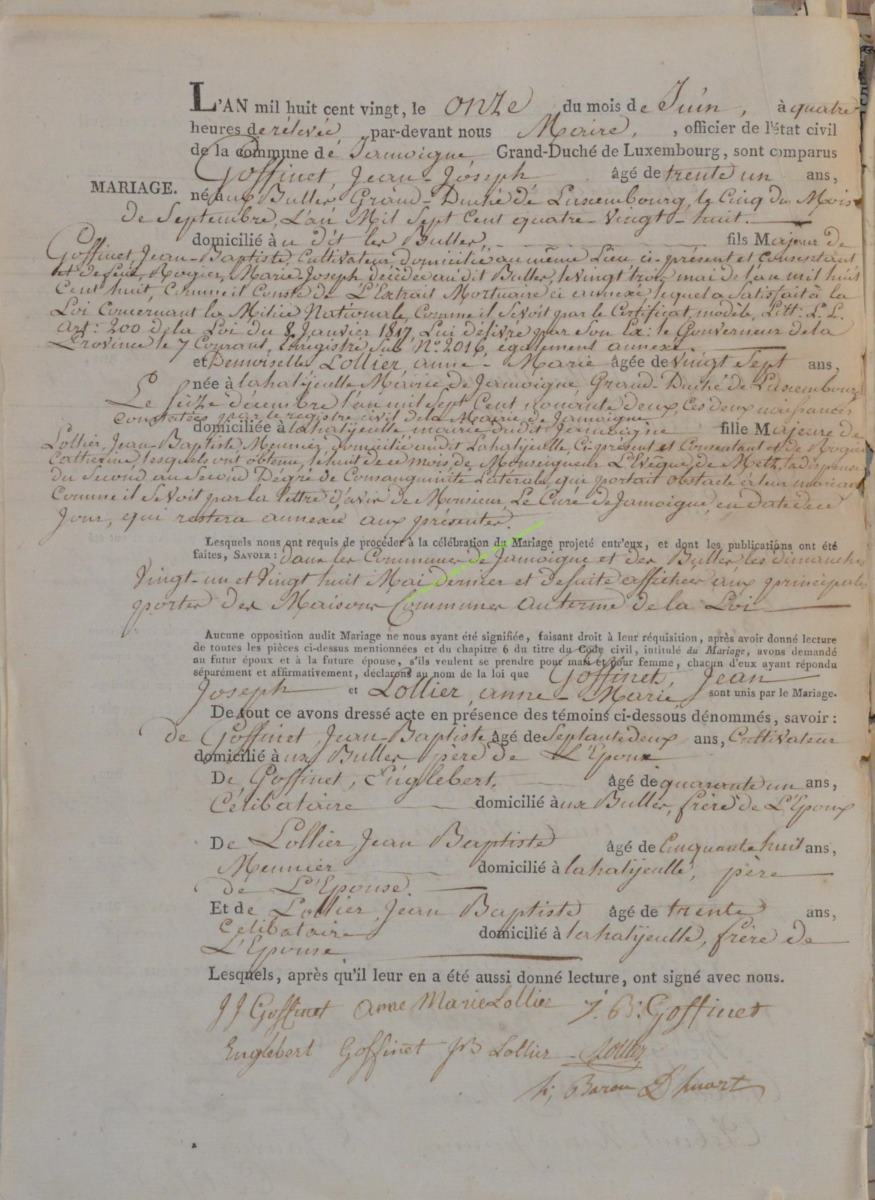 L'AN mil huit cent vingt, le onze du mois de Juin, à quatre
heures de relevée par-devant nous Maire, , officier de l'état civil
de la commune de Jamoigne Grand-Duché de Luxembourg, sont comparus
Goffinet Jean-Joseph âgé de trente un ans,
MARIAGE.
né aux Bulles, Grand-Duché de Luxembourg, le Cinq du Mois
de Septembre, L'an Mil Sept Cent quatre-Vingt-huit.
domicilié à u dit les Bulles, fils Majeur de
Goffinet, Jean-Baptiste, Cultivateur, domicilié au même Lieu ci-présent et Consentant
et de feue Rogier, Marie-Joseph décédée au dit Bulles, le vingt trois mai de l'an mil huit
Cent huit, Comme il Conste de L'Extrait Mortuaire ci annexé, lequel a Satisfait à la
Loi Concernant la Milice Nationale, Comme il Se voit par le Certificat, modèle, Litt. L.L.
Art: 200 de la Loi du 8 Janvier 1817, Lui délivré par Son Ex: le Gouverneur de la
Province le 7 Courant, Enregistré Sub N° 2016, également annexé
et Demoiselle Lollier, anne-Marie âgée de vingt Sept ans,
née à lahatyeulle Mairie de Jamoigne Grand-Duché de Luxembourg
Le Seize décembre l'an mil Sept Cent nonante deux, Ces deux naissances
Constatées par le registre civil de la Mairie de Jamoigne
domiciliée à lahatyeulle mairie dudit Jamoigne fille Majeure de
Lollier, Jean-Baptiste Meunier, domicilié audit Lahatyeulle, Ci-présent et Consentant et de Rogier
Catherine, lesquels ont obtenu, le huit de ce mois, de Monseigneur L'Evêque de Metz, la dispense
du Second au Second Dégré de Consanguinité Latérale, qui portait obstacle à leur mariage
Comme il Se voit par la lettre d'avis de Monsieur Le Curé de Jamoigne, en date de ce
Jour, qui restera annexée aux présentes.
Lesquels nous ont requis de procéder à la célébration du Mariage projeté entr'eux, et dont les publications ont été
faites, SAVOIR: dans les Communes de Jamoigne et des Bulles les dimanches
Vingt-un et Vingt huit Mai dernier et de suite affichées aux principales
portes des Maisons Communes au terme de la Loi
Aucune opposition audit Mariage ne nous ayant été signifiée, faisant droit à leur réquisition, après avoir donné lecture
de toutes les pièces ci-dessus mentionnées et du chapitre 6 du titre du Code civil, intitulé du Mariage, avons demandé
au futur époux et à la future épouse, s'ils veulent se prendre pour mari et pour femme, chacun d'eux ayant répondu
séparément et affirmativement, déclarons au nom de la loi que Goffinet, Jean
Joseph et Lollier, anne-Marie sont unis par le Mariage.
De tout ce avons dressé acte en présence des témoins ci-dessous dénommés, savoir :
de Goffinet, Jean-Baptiste âgé de Septante deux ans, Cultivateur
domicilié à ux Bulles père de L'Epoux
De Goffinet, Englebert, âgé de quarante un ans,
Célibataire domicilié à ux Bulles, frère de L'Epoux
De Lollier Jean Baptiste âgé de Cinquante huit ans,
Meunier domicilié à lahatyeulle, père
de L'Epouse.
Et de Lollier, Jean Baptiste âgé de trente ans,
Célibataire domicilié à lahatyeulle, frère de
L'Epouse
Lesquels, après qu'il leur en a été aussi donné lecture, ont signé avec nous.
JJ Goffinet anne Marie Lollier J. B. Goffinet
Englebert Goffinet JB Lollier Lollier
Baron D'huart